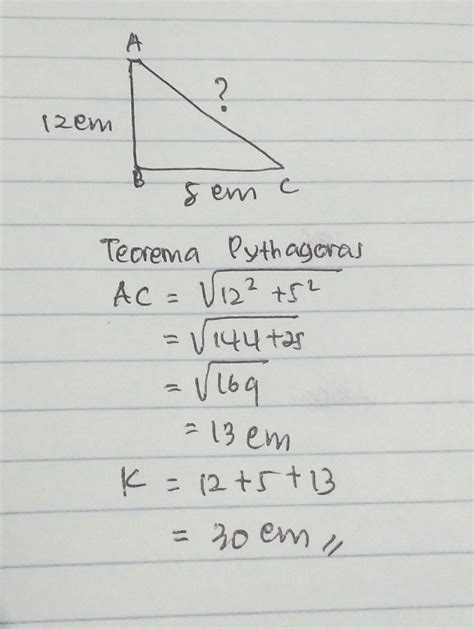 A
?
12 cm
B
5 cm C
Teorema Pythagoras
AC = √12² + 5²
= √144+25
= √169
= 13 cm
K = 12 + 5 + 13
= 30 cm //